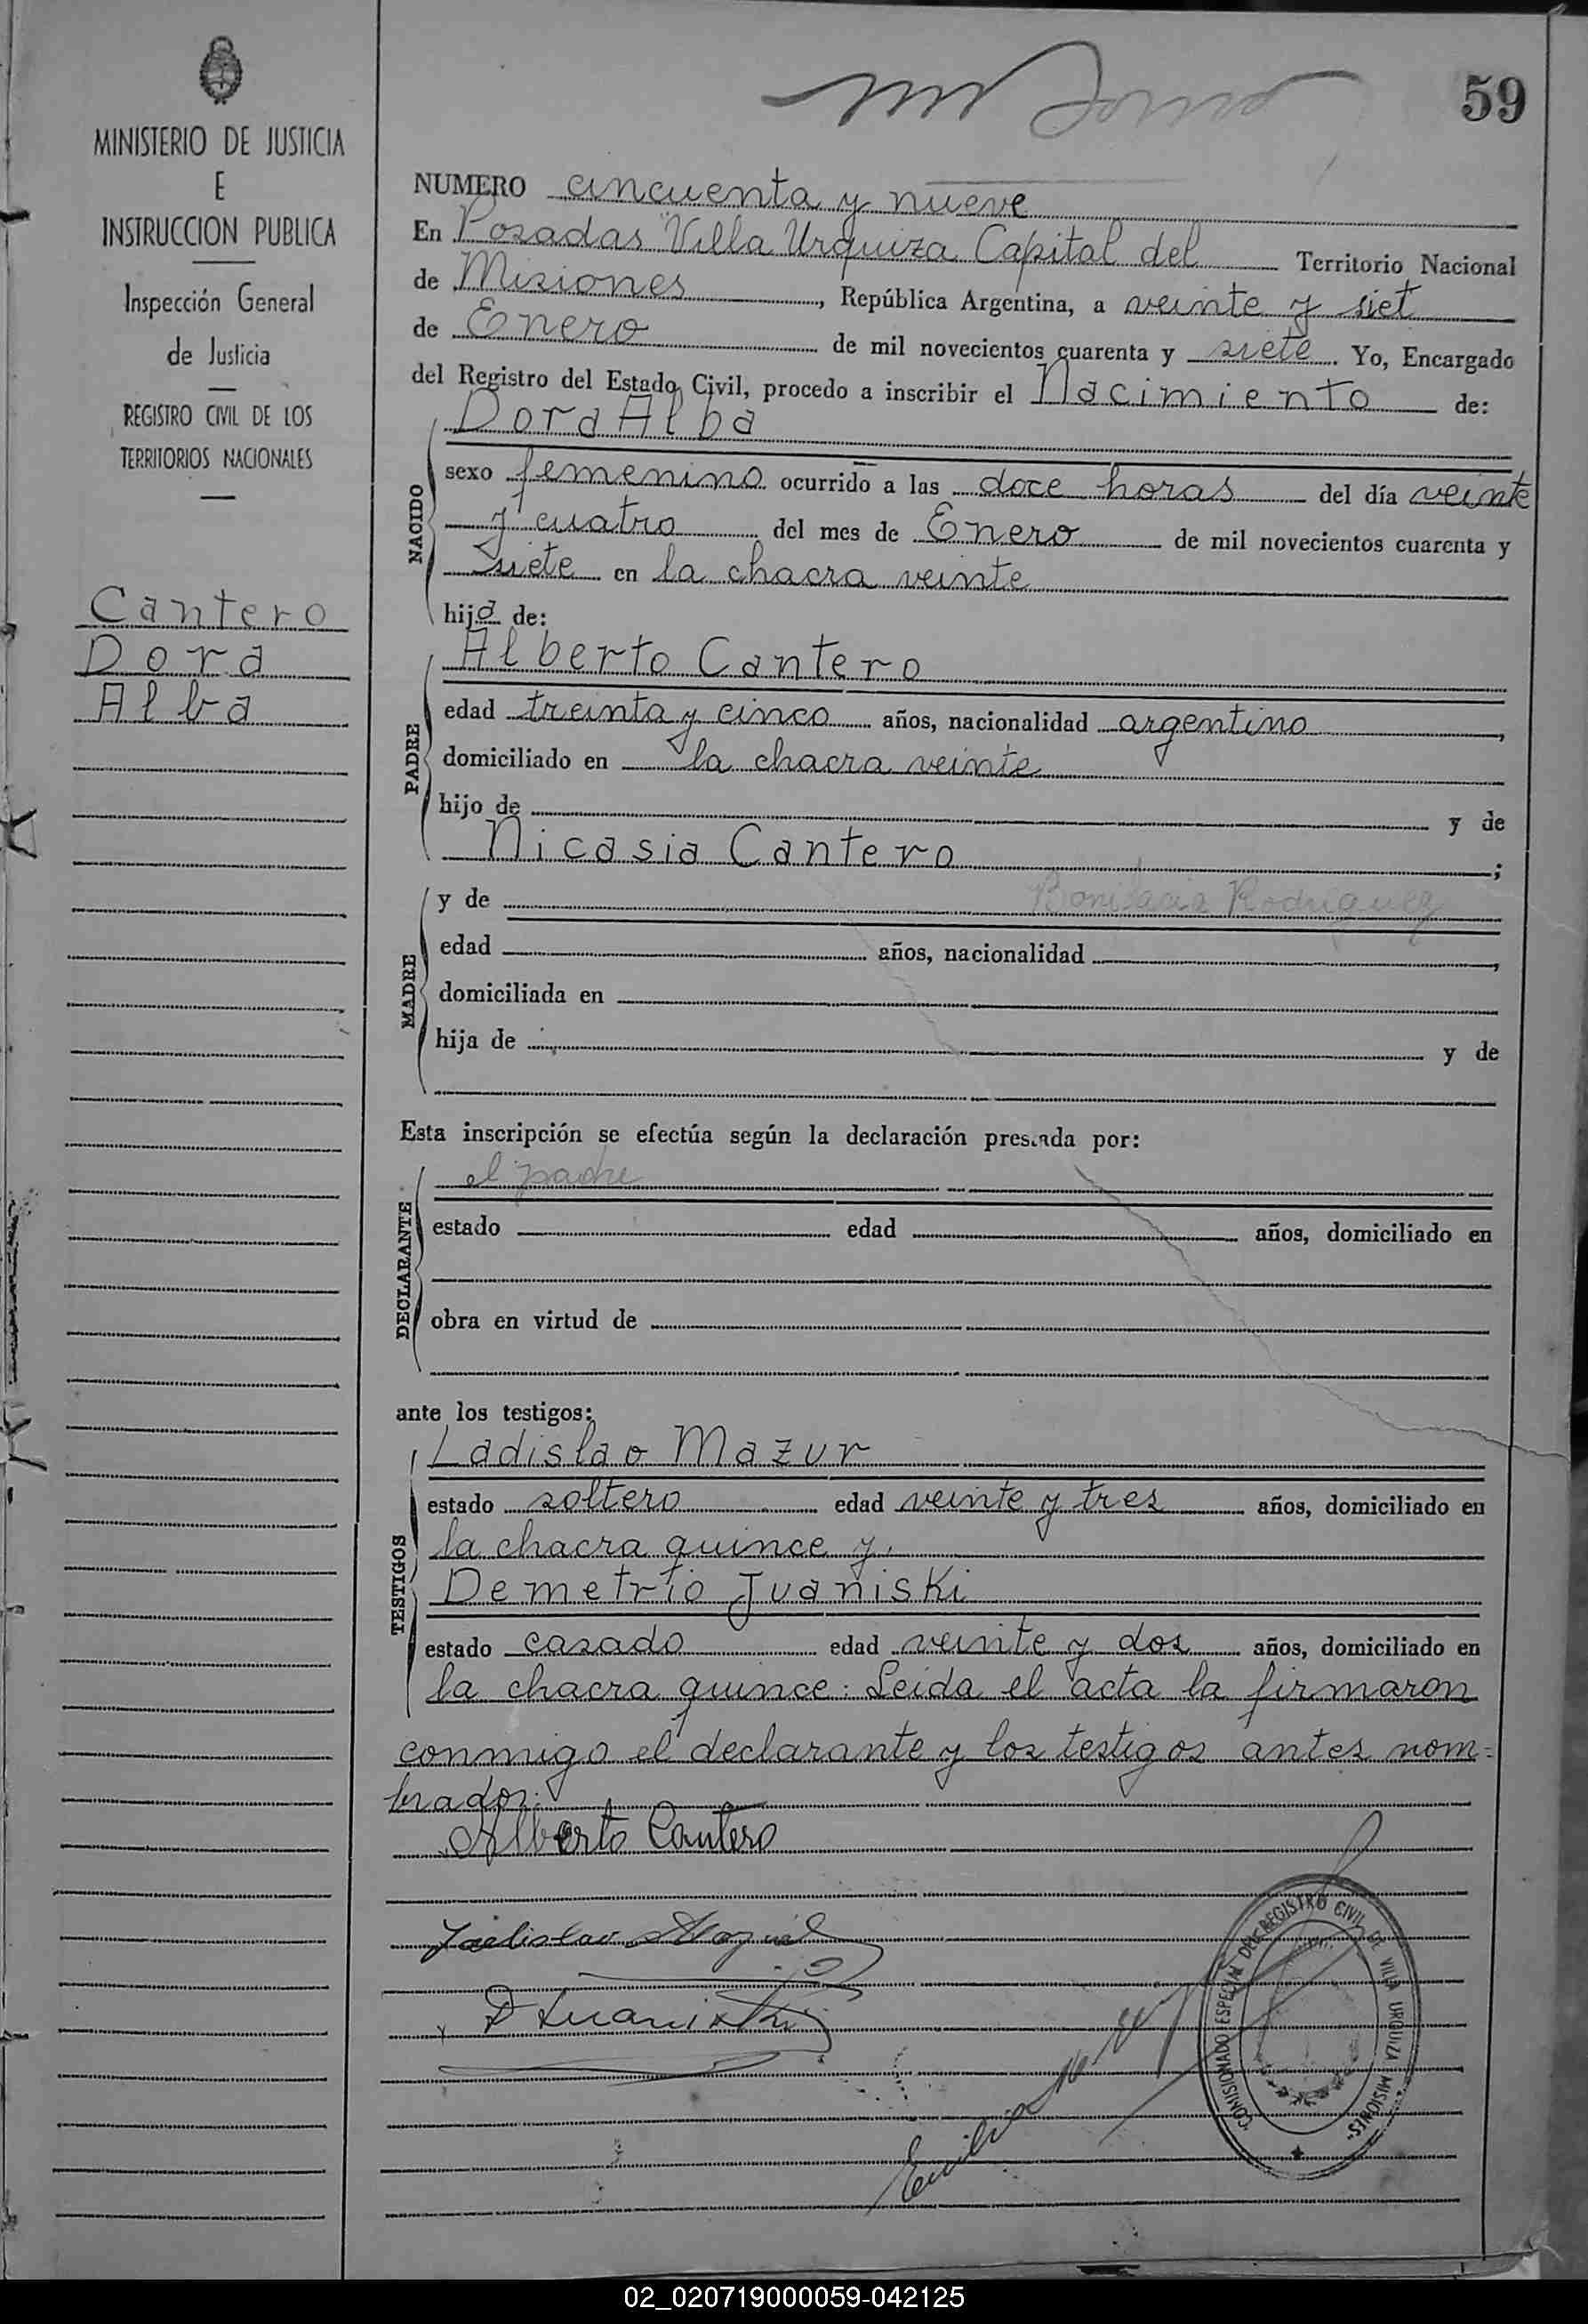 59
MINISTERIO DE JUSTICIA
E
INSTRUCCION PUBLICA
Inspección General
de Justicia
REGISTRO CIVIL DE LOS
TERRITORIOS NACIONALES
Cantero
Dora
Alba
NUMERO cincuenta y nueve
En Posadas "Villa Urquiza Capital del Territorio Nacional
de Misiones, República Argentina, a veinte y siet
de Enero de mil novecientos cuarenta y siete. Yo, Encargado
del Registro del Estado Civil, procedo a inscribir el Nacimiento de:
Dora Alba
NACIDO
sexo femenino ocurrido a las doce horas del día veinte
y cuatro del mes de Enero de mil novecientos cuarenta y
siete en la chacra veinte
hija de:
Alberto Cantero
PADRE
edad treinta y cinco años, nacionalidad argentino,
domiciliado en la chacra veinte
hijo de y de
Nicasia Cantero;
MADRE
y de Bonifacia Rodriguez
edad años, nacionalidad,
domiciliada en
hija de y de
Esta inscripción se efectúa según la declaración prestada por:
DECLARANTE
el padre
estado edad años, domiciliado en
obra en virtud de
ante los testigos:
TESTIGOS
Ladislao Mazur
estado soltero edad veinte y tres años, domiciliado en
la chacra quince y
Demetrio Juaniski
estado casado edad veinte y dos años, domiciliado en
la chacra quince: Leida el acta la firmaron
conmigo el declarante y los testigos antes nom=
brados.
Alberto Cantero
Ladislao Mazur
D Juaniski
Emilio
COMISIONADO ESPECIAL DEL REGISTRO CIVIL DE VILLA URQUIZA MISIONES
02_020719000059-042125